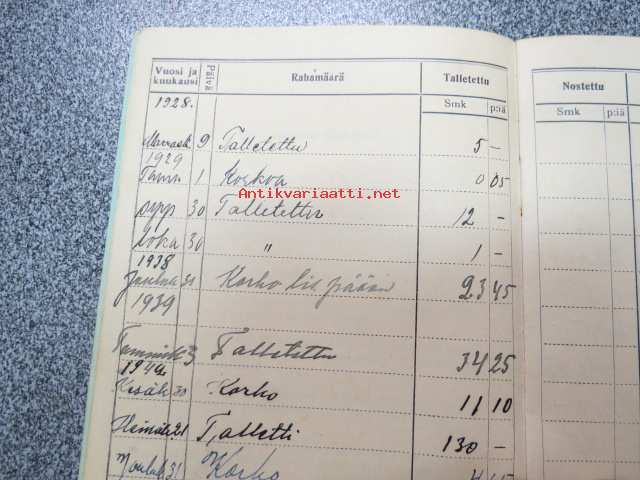 Vuosi ja kuukausi Päivä Rahamäärä Talletettu Nostettu
Smk p:iä Smk p:iä
1928.
Marrask 9 Talletettu 5 –
1929
Tamm. 1 Korkoa 0 05
Antikvariaatti.net
syys 30 Talletettu 12 –
loka 30 " 1 –
1938
Joulu 31 Korko lis. pääom 23 45
1939
Tammik 3 Talletettu 34 25
Kesäk 30 Korko 11 10
Heinäk 21 Talletti 130 –
Jouluk 31 Korko 4